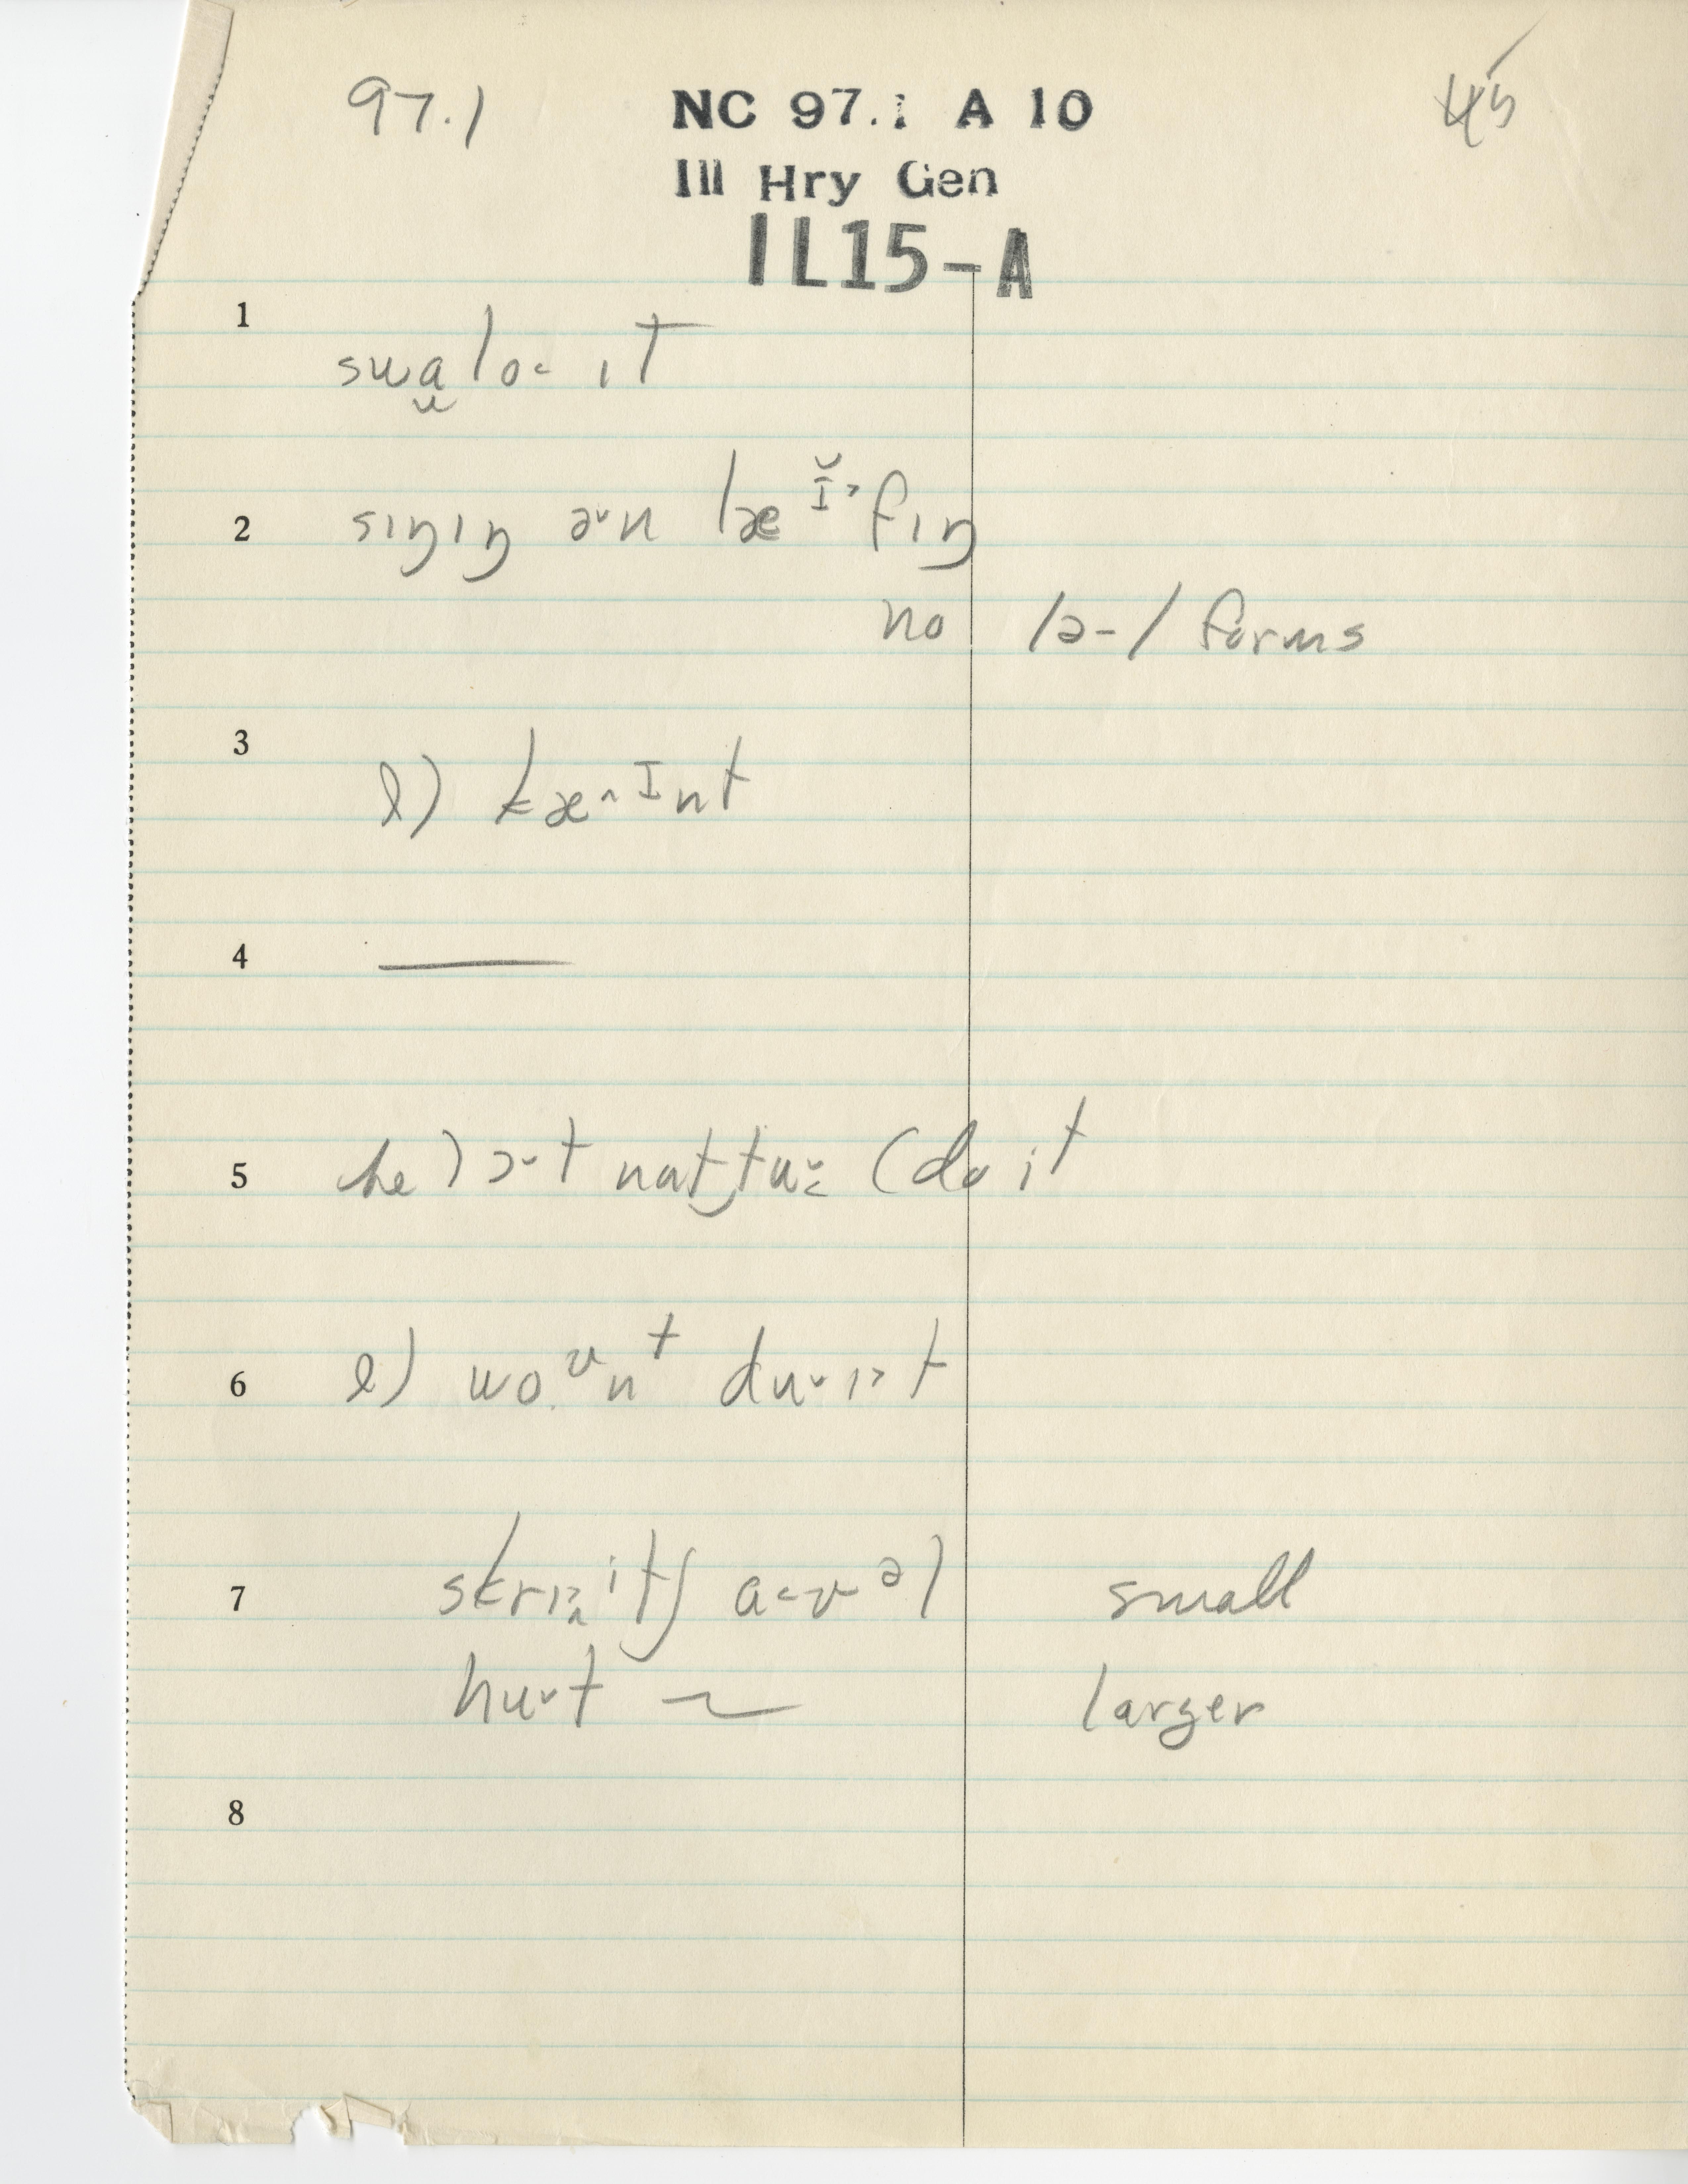 97.1 NC 97.1 A 10 45
Ill Hry Gen
IL15-A
1
swɑ̬lo˂ ɪt
2 sɪŋɪŋ ə˅n læɪ̆˃fɪŋ
no /ə-/ forms
3
l) kæ˄ɪnt
4 ———
5 he) ɔ˅t nɑt‿tu˅˂ (do it
6 l) wo.ʊnt du˅ɪ˃t
7 skrɪ˃˄itʃ ɑ˂ʊəl small
hu˅t ~ larger
8